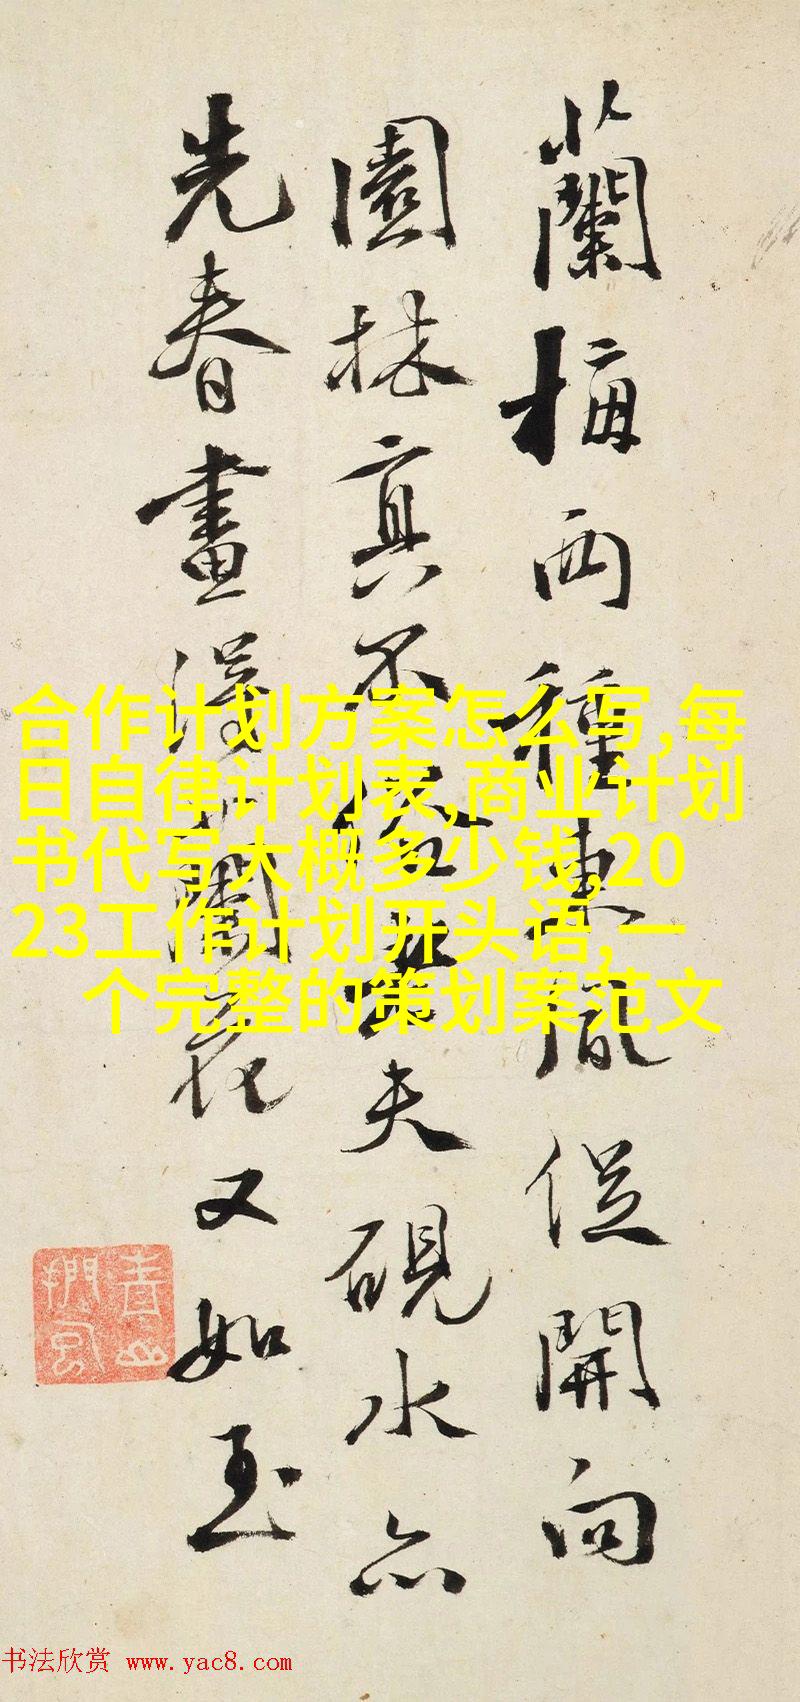 蘭梅两種東風從開向
園林真不俗老夫硯水亦
先春畫得蘭花又如玉
合作计划方案怎么写,每
日自律计划表,商业计划
书代写大概多少钱,20
23工作计划开头语,一
个完整的策划案范文
书法欣赏 www.yac8.com